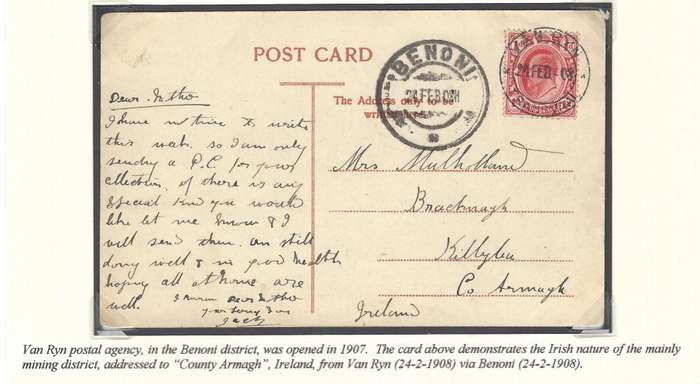 POST CARD
BENONI
24 FEB 08
VAN RYN
24 FEB 08
The Address only to be
written here
Dear Mother
I have no time to write
this week so I am only
sending a P.C. for your
collection. if there is any
special kind you would
like let me know & I
will send them. am still
doing well & in good health
hoping all at home are
well.
I remain dear Mother
your loving son
Jack
Mrs Mulholland
Killylea
Co Armagh
Ireland
Van Ryn postal agency, in the Benoni district, was opened in 1907. The card above demonstrates the Irish nature of the mainly
mining district, addressed to “County Armagh”, Ireland, from Van Ryn (24-2-1908) via Benoni (24-2-1908).